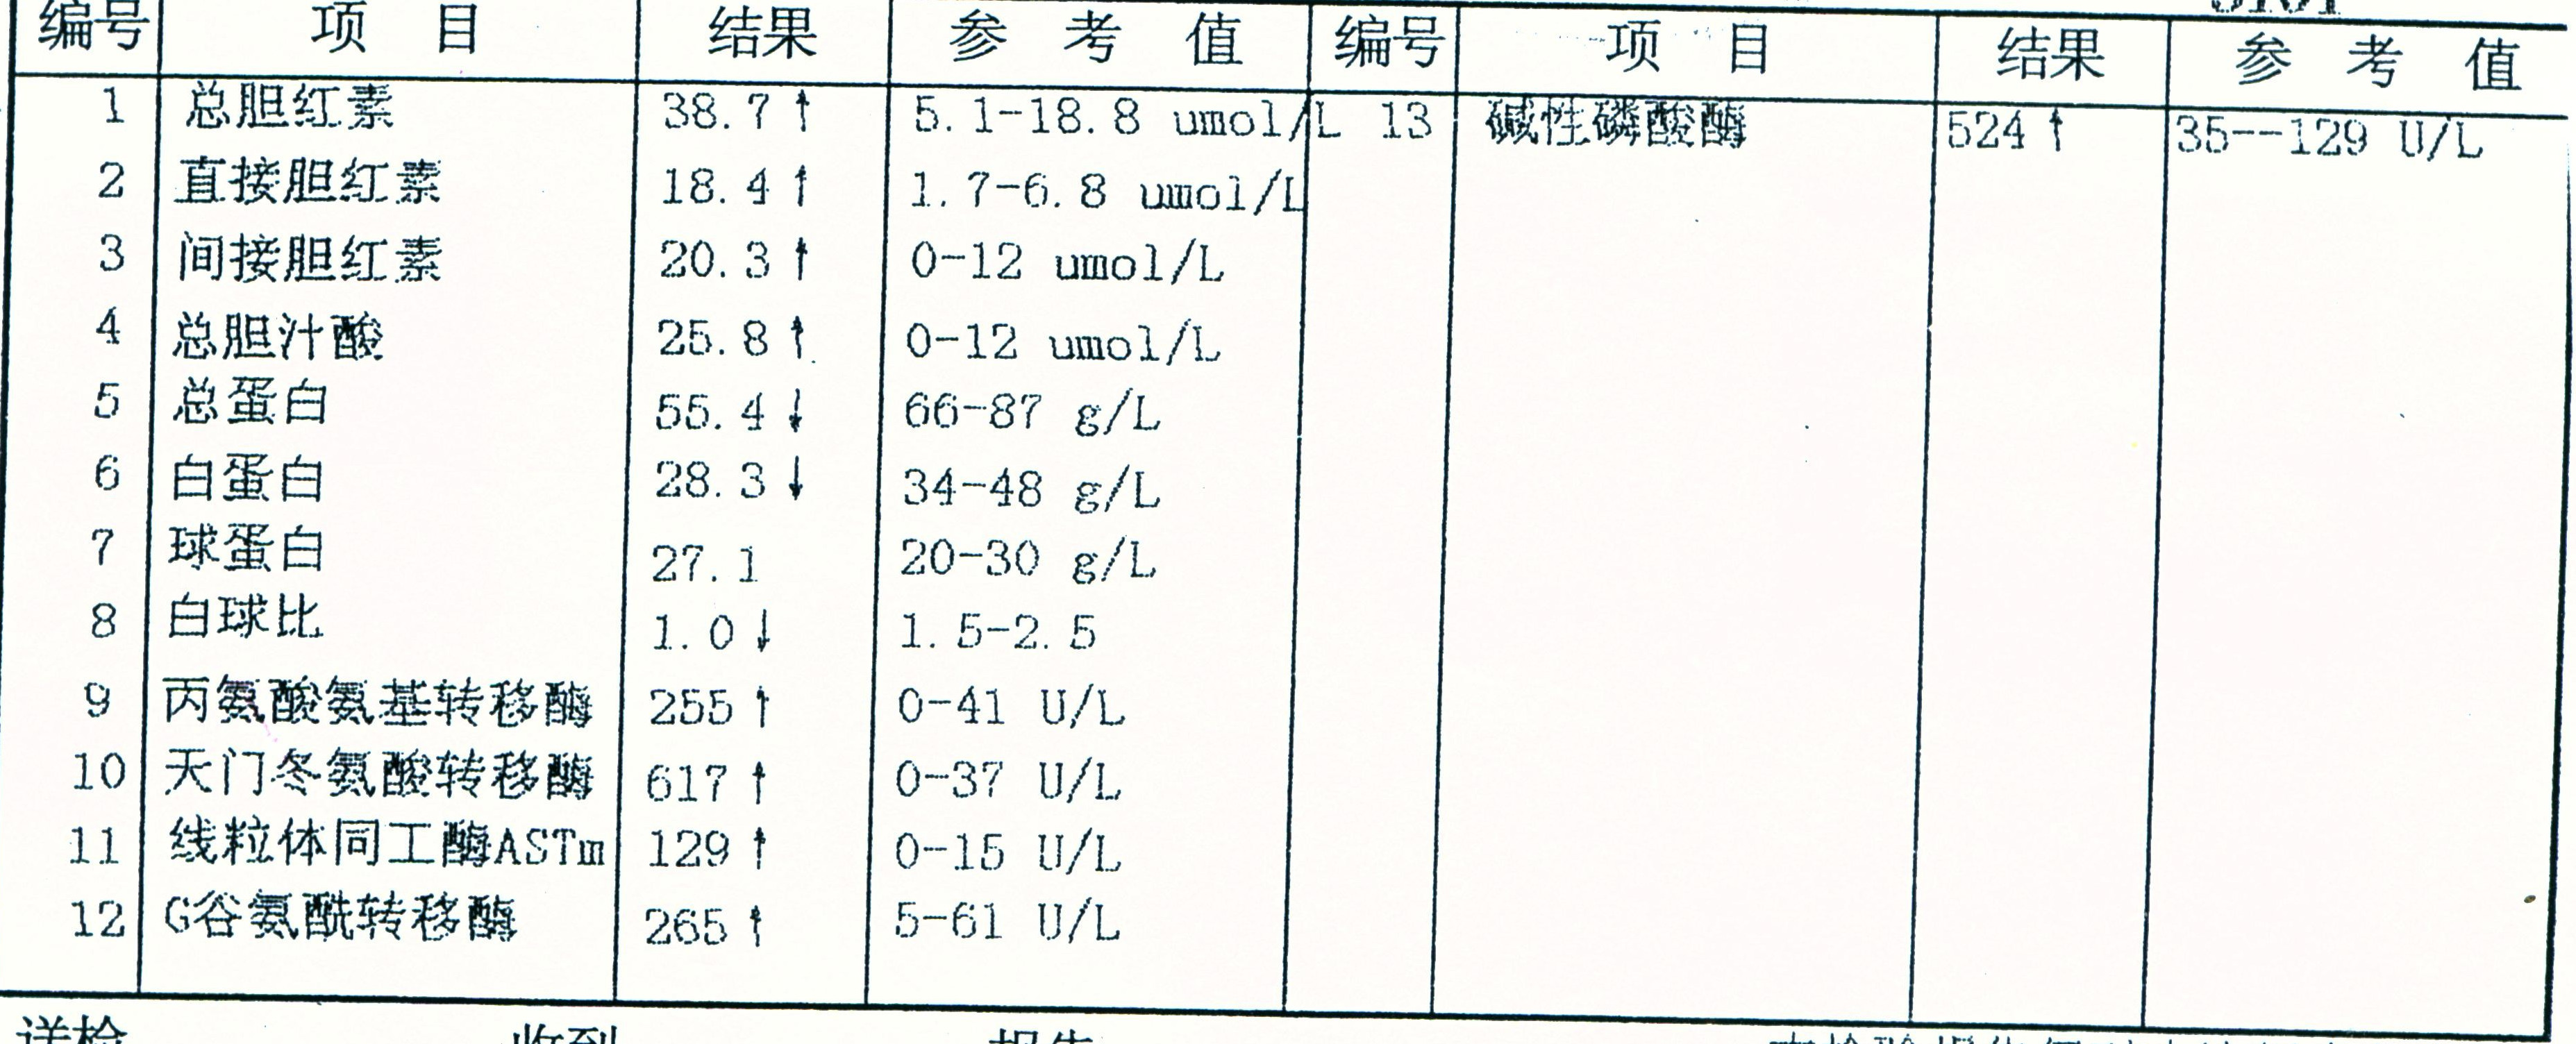 编号 项 目 结果 参 考 值 编号 项 目 结果 参 考 值
1 总胆红素 38.7↑ 5.1-18.8 umol/L 13 碱性磷酸酶 524↑ 35--129 U/L
2 直接胆红素 18.4↑ 1.7-6.8 umol/L
3 间接胆红素 20.3↑ 0-12 umol/L
4 总胆汁酸 25.8↑ 0-12 umol/L
5 总蛋白 55.4↓ 66-87 g/L
6 白蛋白 28.3↓ 34-48 g/L
7 球蛋白 27.1 20-30 g/L
8 白球比 1.0↓ 1.5-2.5
9 丙氨酸氨基转移酶 255↑ 0-41 U/L
10 天门冬氨酸转移酶 617↑ 0-37 U/L
11 线粒体同工酶ASTm 129↑ 0-15 U/L
12 G谷氨酰转移酶 265↑ 5-61 U/L
送检 收到 报告